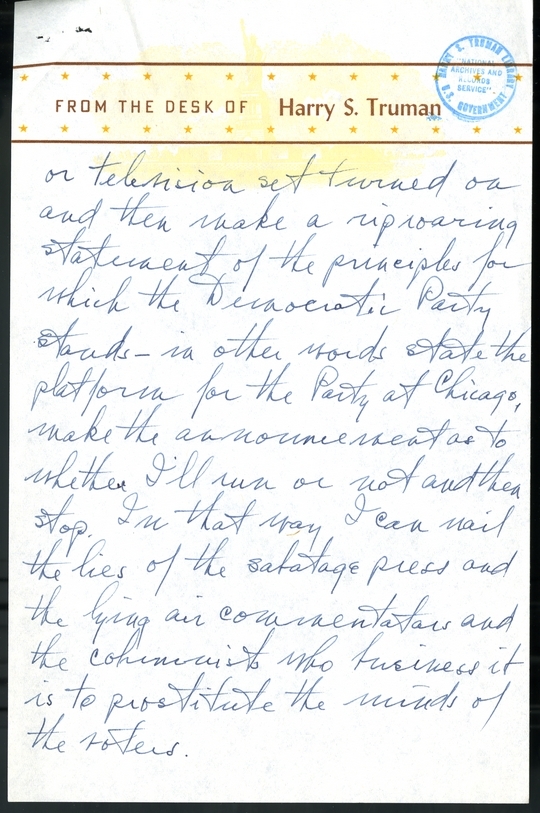 FROM THE DESK OF Harry S. Truman
HARRY S. TRUMAN LIBRARY
"NATIONAL
ARCHIVES AND
RECORDS
SERVICE"
U.S. GOVERNMENT
or television set turned on
and then make a riproaring
statement of the principles for
which the Democratic Party
stands – in other words state the
platform for the Party at Chicago,
make the announcement as to
whether I'll run or not and then
stop. In that way I can nail
the lies of the sabatage press and
the lying air commentators and
the columnists who business it
is to prostitute the minds of
the voters.